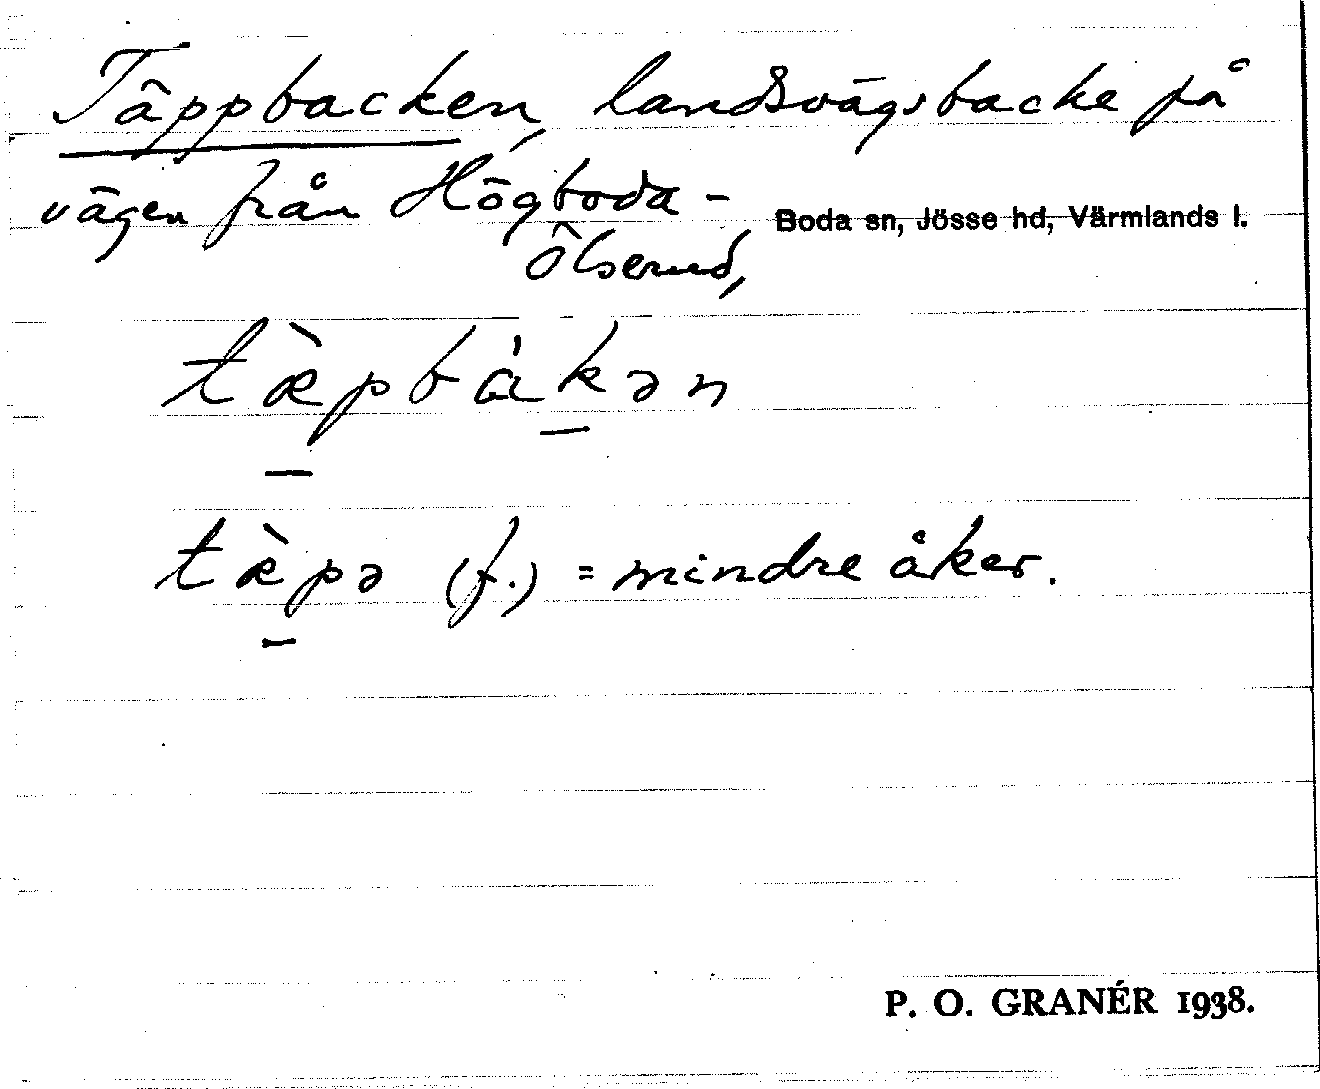 Täppbacken, landsvägsbacke på
vägen från Högboda -
Boda sn, Jösse hd, Värmlands l.
Ölserud,
tæ̀pbákən
tæ̀pə (f.) = mindre åker.
P. O. GRANÉR 1938.